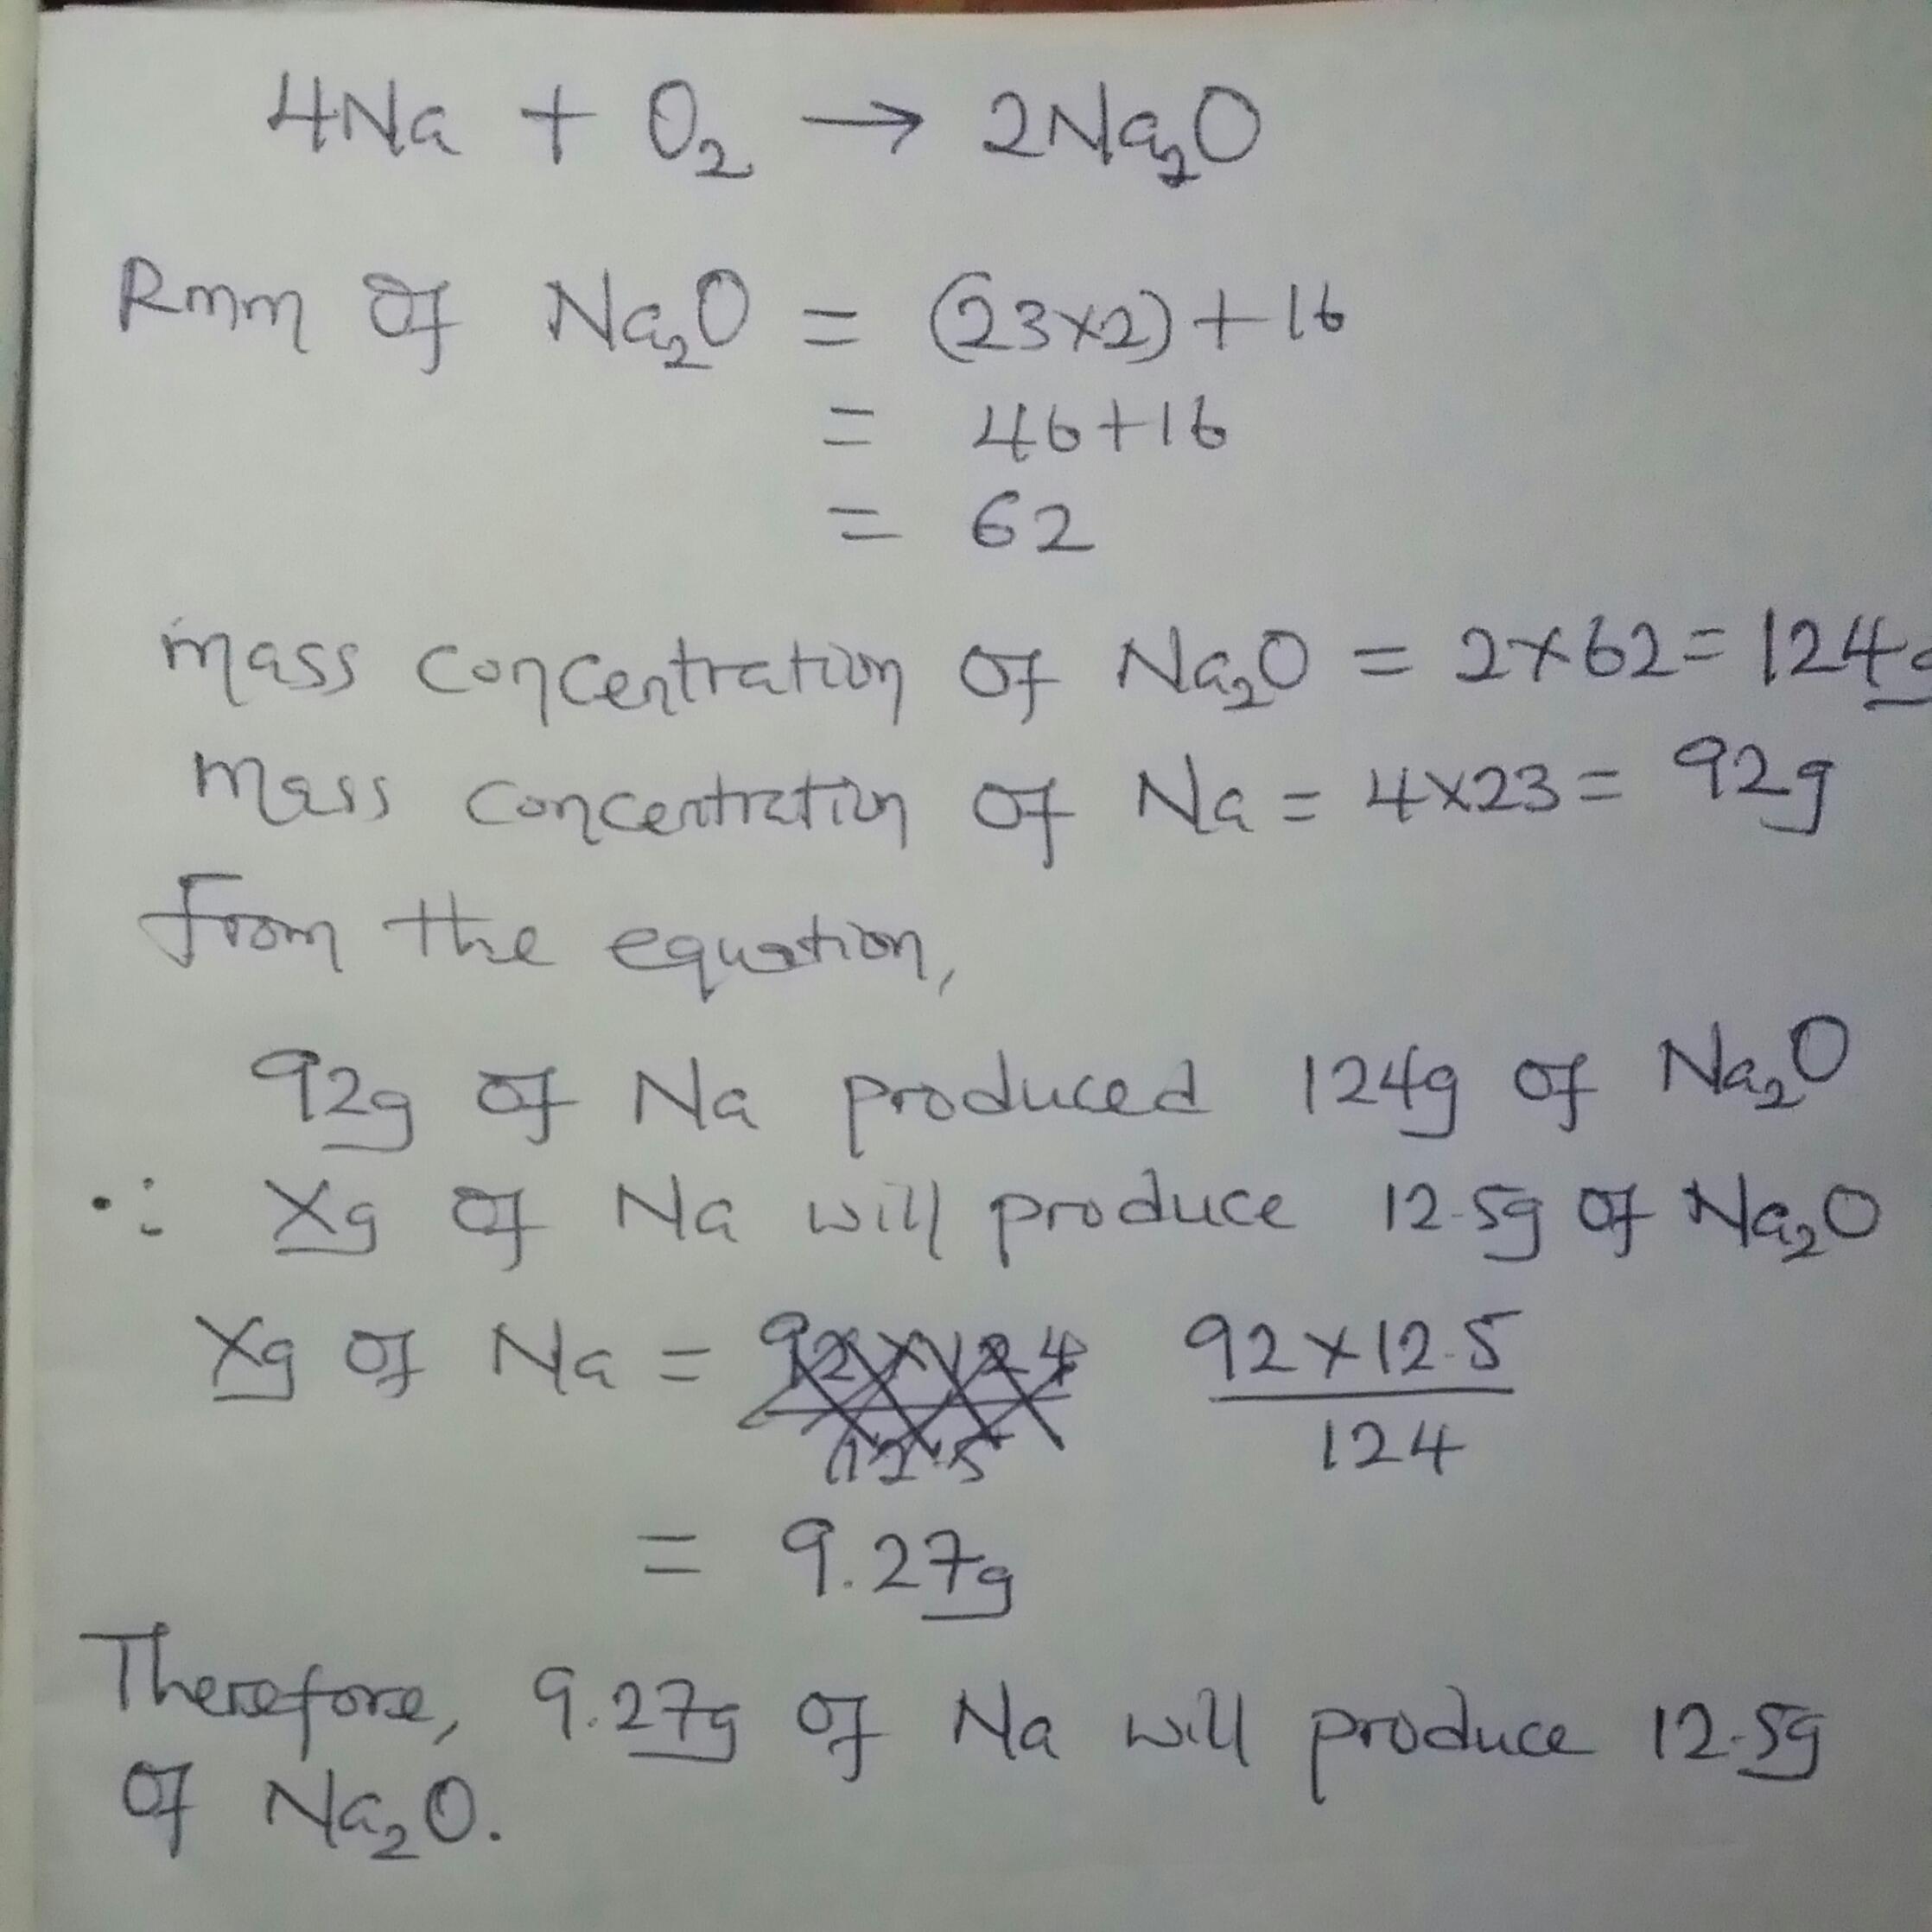 4Na + O₂ → 2Na₂O
Rmm of Na₂O = (23×2)+16
= 46+16
= 62
mass concentration of Na₂O = 2×62 = 124g
mass concentration of Na = 4×23 = 92g
from the equation,
92g of Na produced 124g of Na₂O
∴ Xg of Na will produce 12.5g of Na₂O
Xg of Na = 92×124 92×12.5
12.5 124
= 9.27g
Therefore, 9.27g of Na will produce 12.5g
of Na₂O.